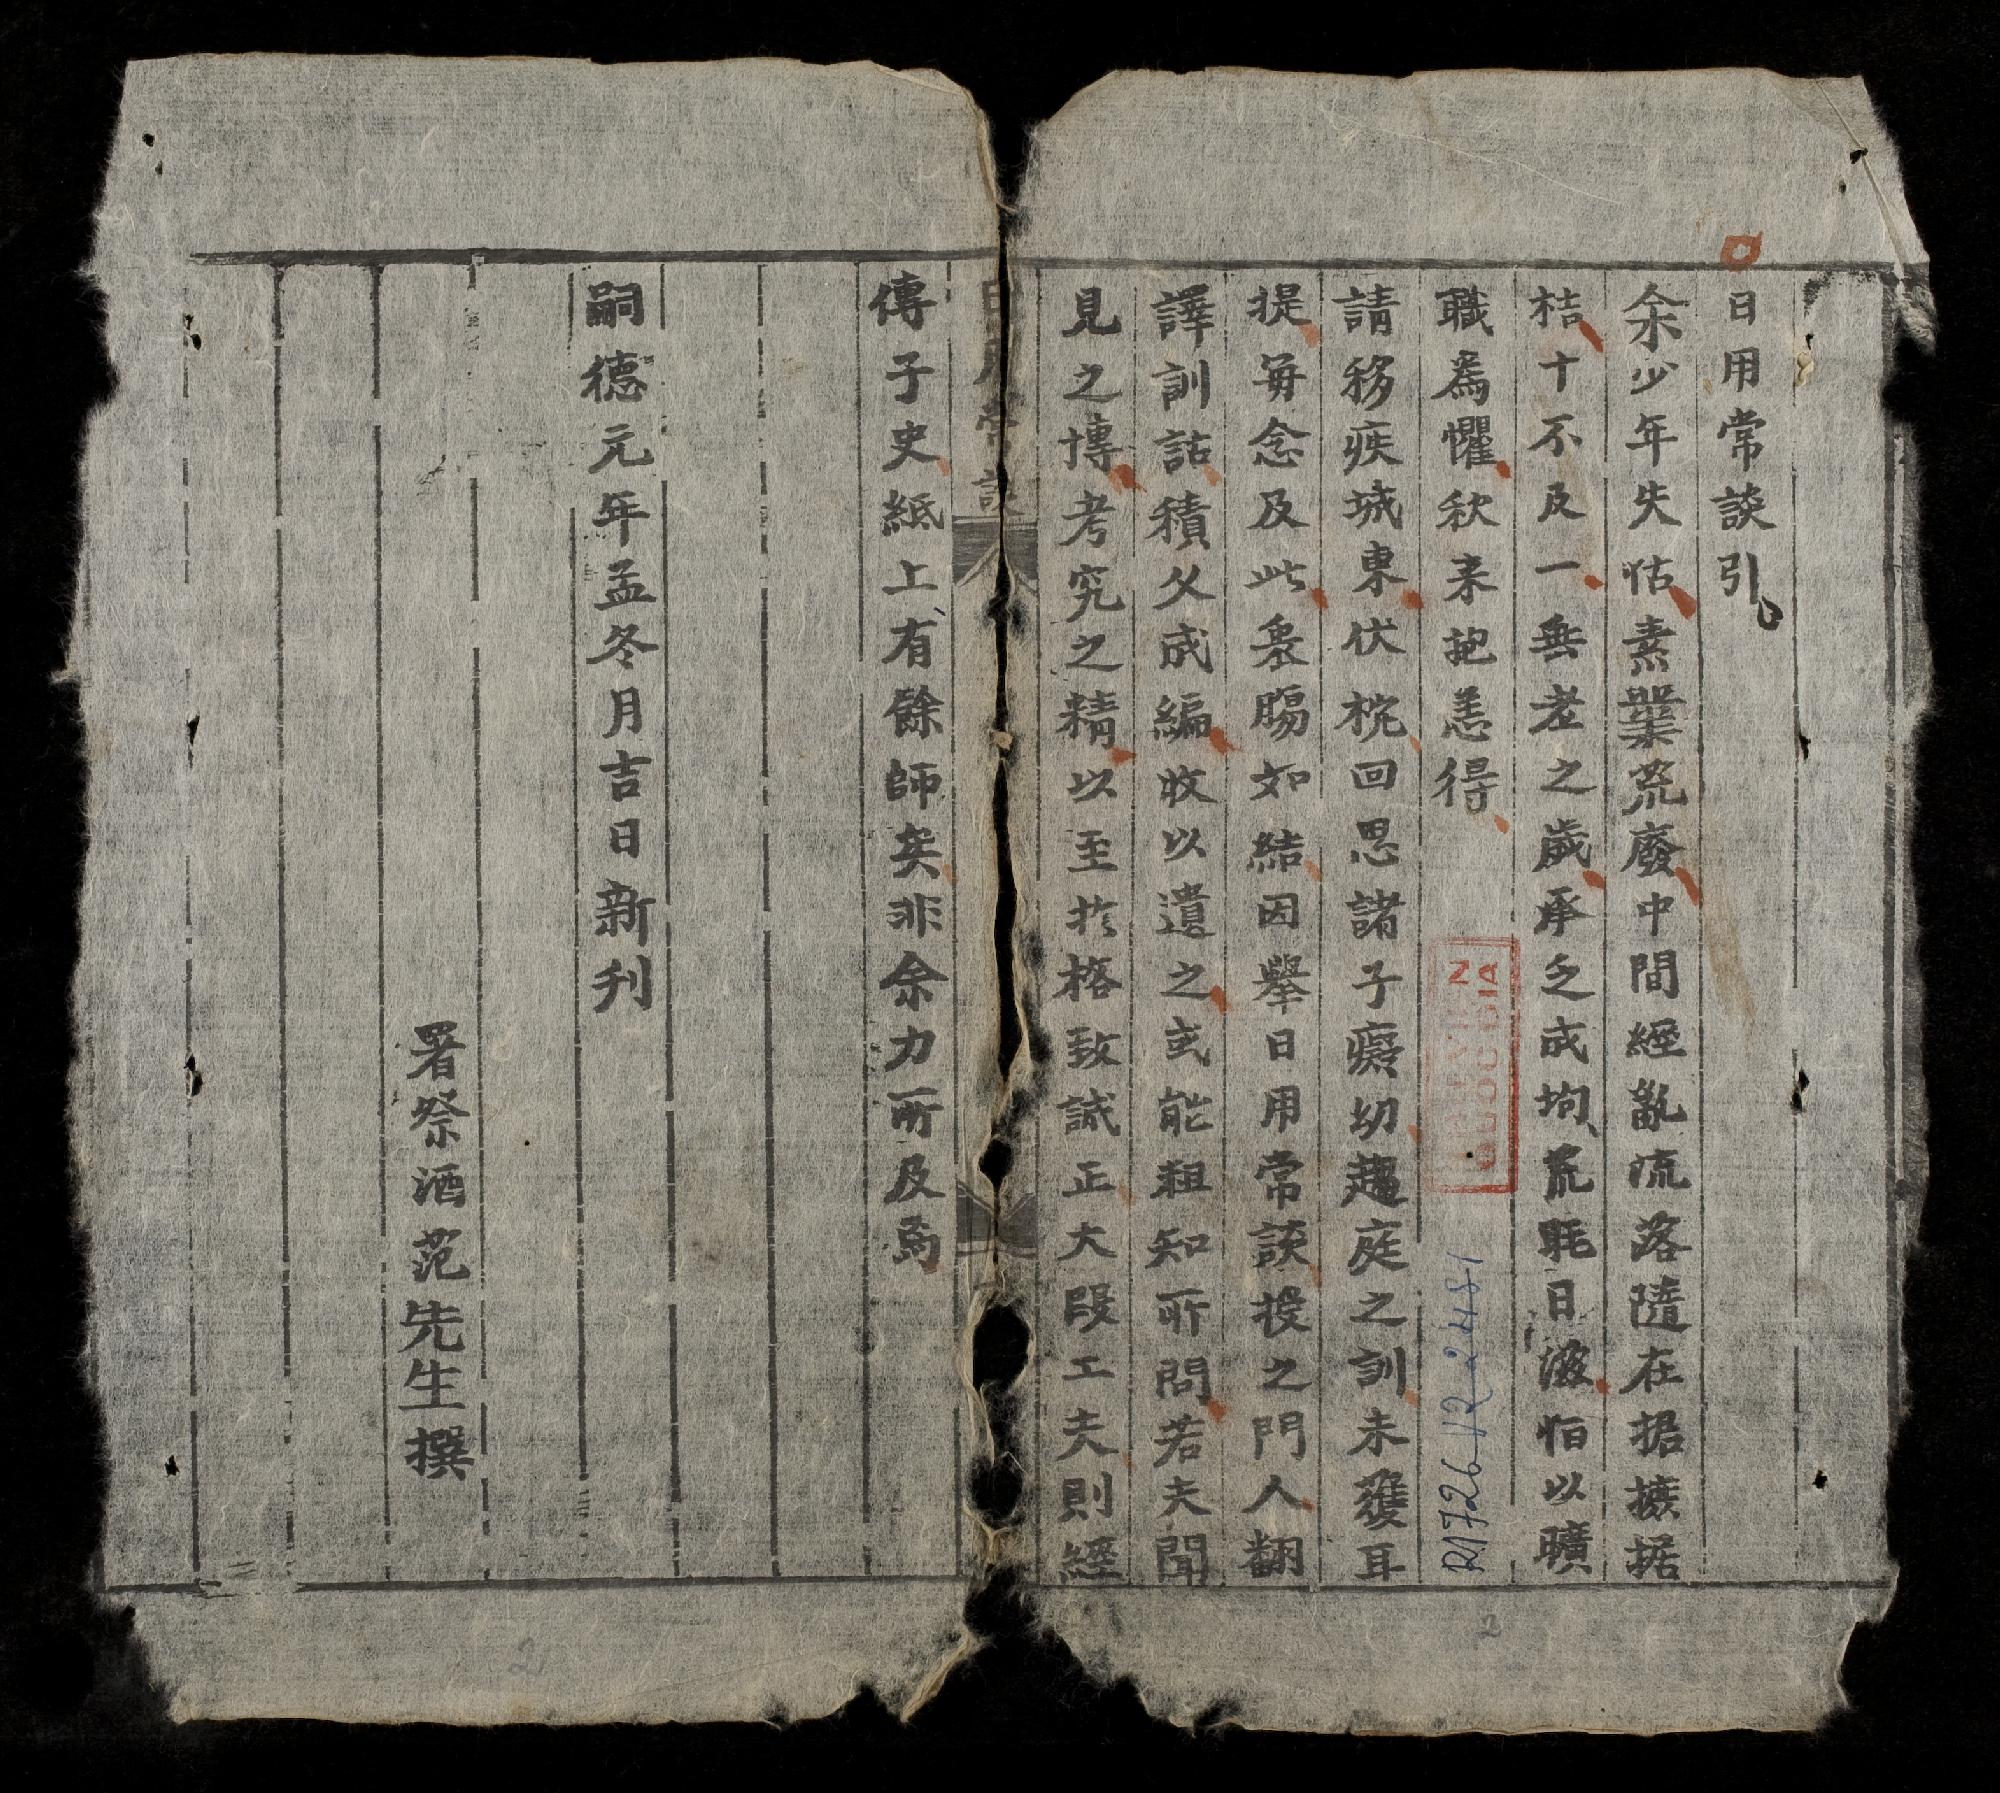 日用常談引
余少年失怙素業荒廢中間經亂流落隨在据摭据
桔十不及一無老之歲承乏成均荒耗日滋怕以曠
職爲懼秋来抱恙得
請移疾城東伏枕回思諸子癡幼趨庭之訓未獲耳
提每念及此衷腸如結因舉日用常談授之門人翻
譯訓詁積久成編收以遺之或能粗知所問若夫聞
見之博考究之精以至於格致誠正大段工夫則經
日用常談
傳子史紙上有餘師矣非余力所及焉
嗣德元年孟冬月吉日新刊
署祭酒范先生撰
R1726 HV2481
2
2